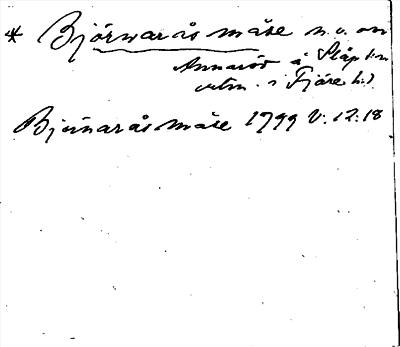 * Björnarås måse n.v. om
Annaröd å Släp s:n
utm. i Fjäre h:d
Bjönarås måse 1799 V. 12:18